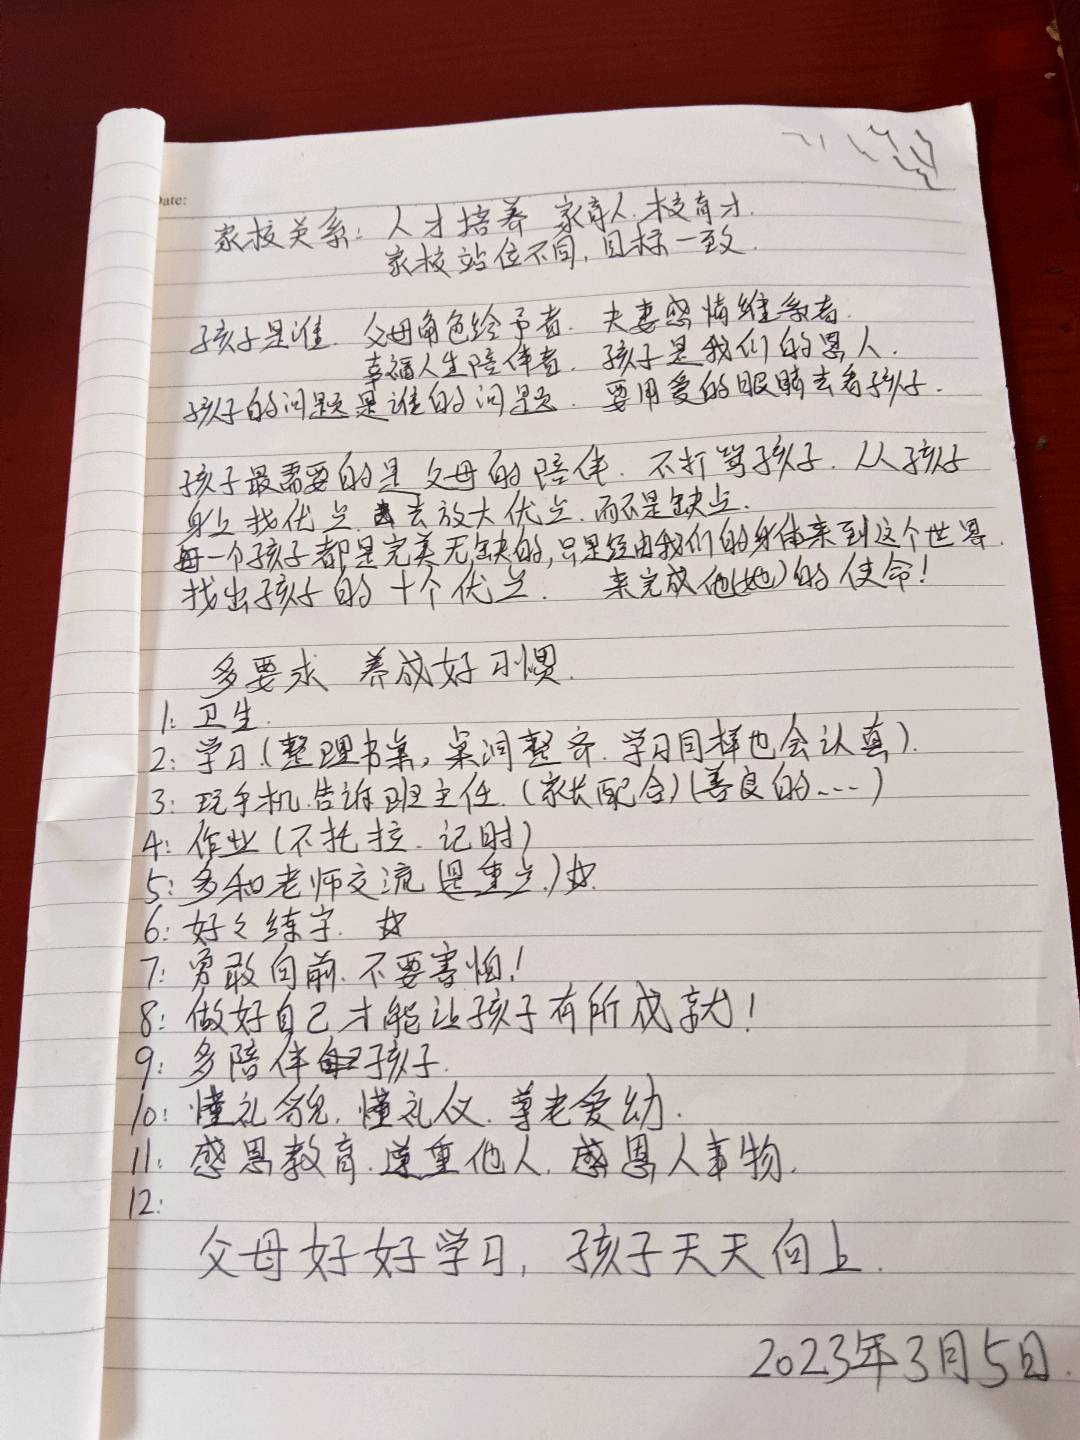 Date:
家校关系: 人才培养 家育人. 校育才.
家校站位不同, 目标一致.
孩子是谁. 父母角色给予者. 夫妻感情维系者.
幸福人生陪伴者. 孩子是我们的恩人.
孩子的问题是谁的问题. 要用爱的眼睛去看孩子.
孩子最需要的是父母的陪伴. 不打骂孩子. 从孩子
身上找优点. 去放大优点. 而不是缺点.
每一个孩子都是完美无缺的, 只是经由我们的身体来到这个世界.
找出孩子的十个优点. 来完成他(她)的使命!
多要求 养成好习惯.
1: 卫生.
2: 学习.(整理书桌, 桌洞整齐. 学习同样也会认真).
3: 玩手机. 告诉班主任. (家长配合)(善良的....)
4: 作业(不托拉. 记时)
5: 多和老师交流(是重点.)☆.
6: 好々练字. ☆
7: 勇敢向前. 不要害怕!
8: 做好自己才能让孩子有所成就!
9: 多陪伴孩子.
10: 懂礼貌. 懂礼仪. 尊老爱幼.
11: 感恩教育. 尊重他人. 感恩人事物.
12:
父母好好学习, 孩子天天向上.
2023年3月5日.